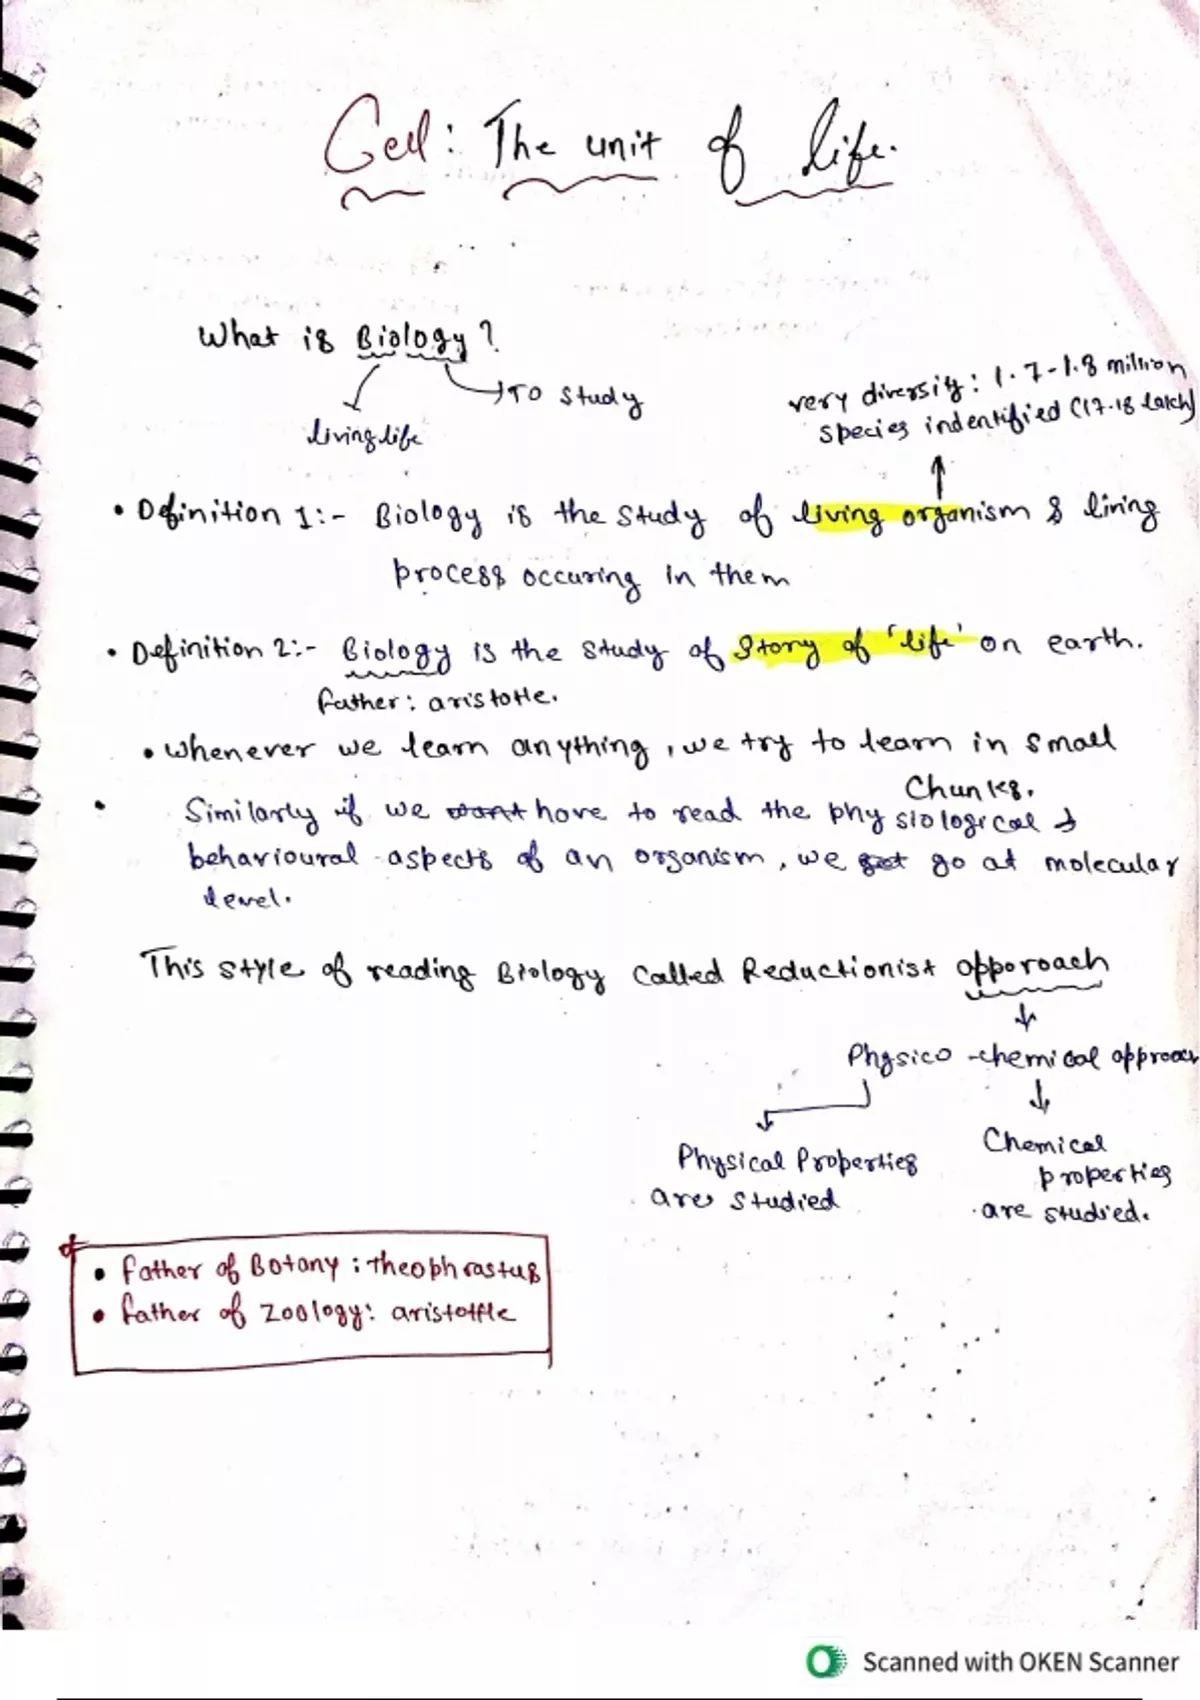 Cell: The unit of life.
What is Biology?
To study
living life
very diversity: 1.7-1.8 million
species indentified (17-18 lakh)
• Definition 1:- Biology is the study of living organism & living
process occuring in them
• Definition 2:- Biology is the study of story of 'life' on earth.
father: aristotle.
• Whenever we learn anything, we try to learn in small
Chunks.
• Similarly if we want have to read the phy siological &
behavioural aspects of an organism, we get go at molecular
level.
This style of reading Biology called Reductionist opporoach
Physico-chemical approach
Physical Properties
are studied
Chemical
properties
are studied.
• father of Botany: theophrastus
• father of zoology: aristottle
Scanned with OKEN Scanner